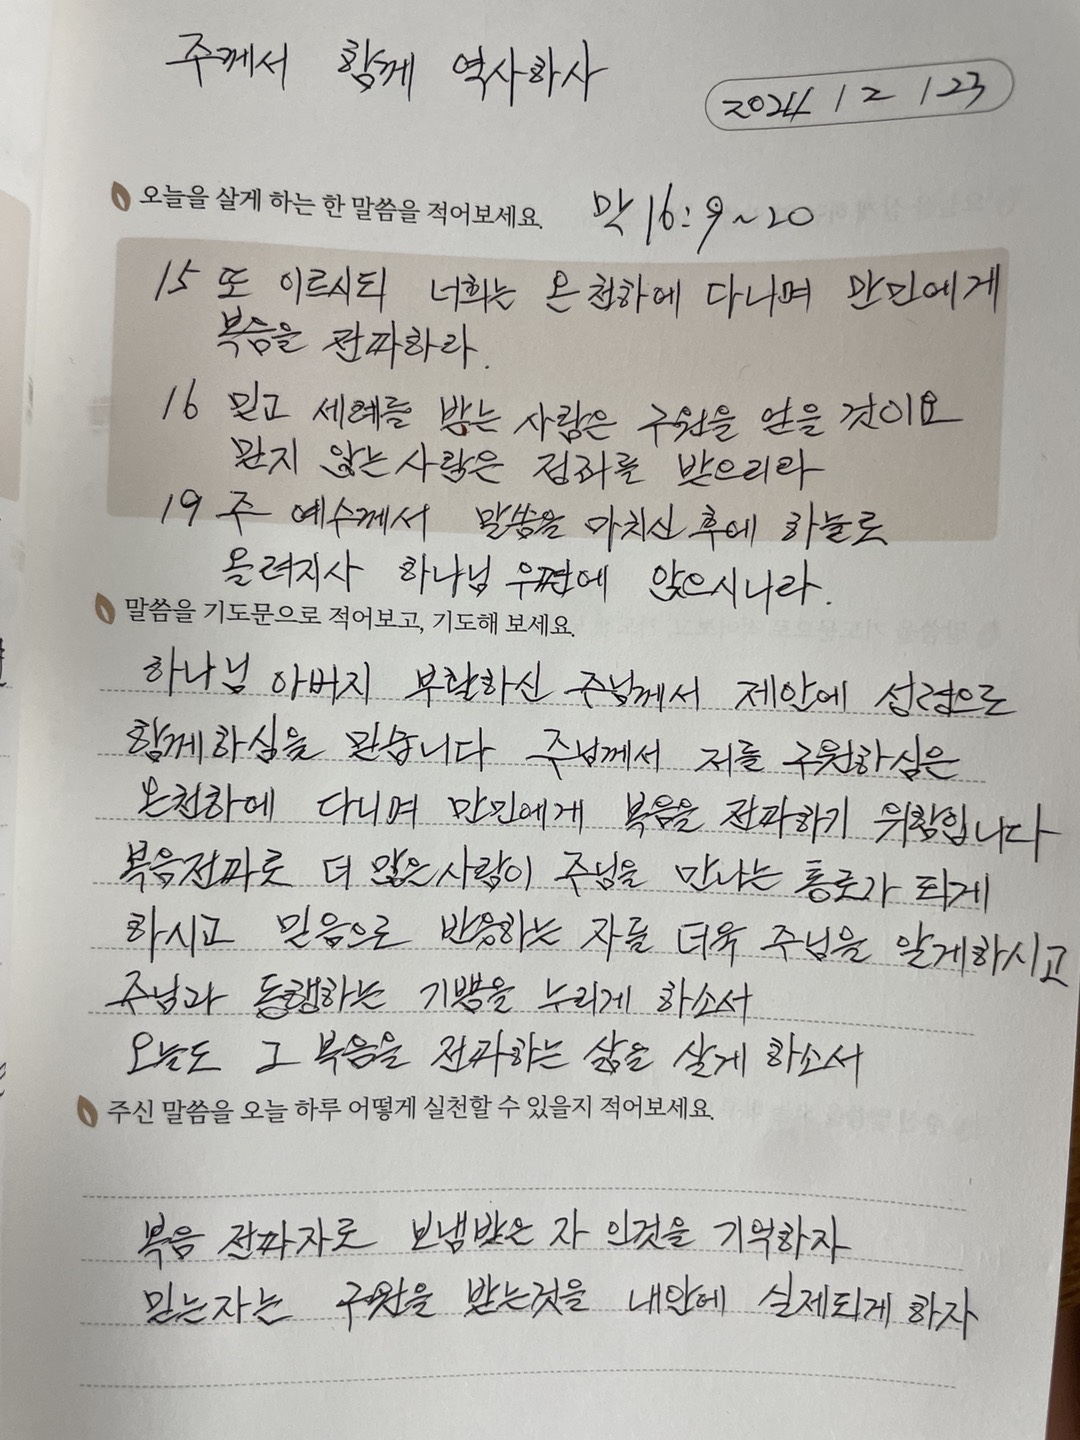 주께서 함께 역사하사
2024 12 23
오늘을 살게 하는 한 말씀을 적어보세요. 막 16:9~20
15 또 이르시되 너희는 온 천하에 다니며 만민에게
복음을 전파하라.
16 믿고 세례를 받는 사람은 구원을 얻을 것이요
믿지 않는 사람은 정죄를 받으리라
19 주 예수께서 말씀을 마치신 후에 하늘로
올려지사 하나님 우편에 앉으시니라.
말씀을 기도문으로 적어보고, 기도해 보세요.
하나님 아버지 부활하신 주님께서 제안에 성령으로
함께하심을 믿습니다 주님께서 저를 구원하심은
온천하에 다니며 만민에게 복음을 전파하기 위함입니다
복음전파로 더 많은사람이 주님을 만나는 통로가 되게
하시고 믿음으로 반응하는 자를 더욱 주님을 알게하시고
주님과 동행하는 기쁨을 누리게 하소서
오늘도 그 복음을 전파하는 삶을 살게 하소서
주신 말씀을 오늘 하루 어떻게 실천할 수 있을지 적어보세요.
복음 전파자로 보냄받은 자 인것을 기억하자
믿는자는 구원을 받는것을 내안에 실제되게 하자